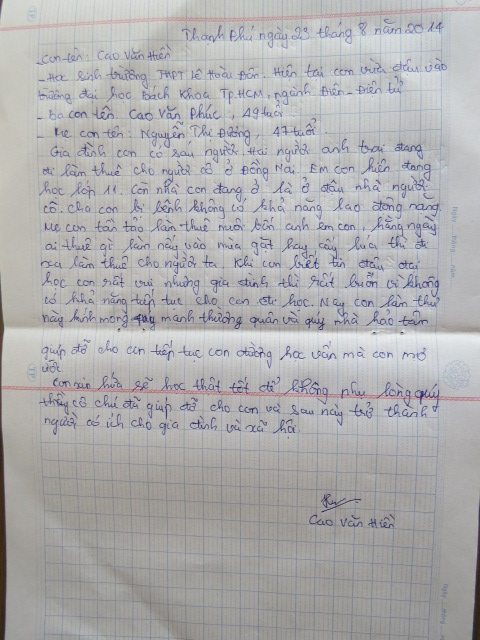 Thạnh Phú ngày 23 tháng 8 năm 2014
- Con tên: Cao Văn Hiền
- Học sinh trường THPT Lê Hoài Đôn. Hiện tại con vừa đậu vào
trường đại học Bách Khoa Tp.HCM, ngành Điện - Điện tử
- Ba con tên: Cao Văn Phúc, 49 tuổi.
- Mẹ con tên: Nguyễn Thị Đường, 47 tuổi.
Gia đình con có sáu người. Hai người anh trai đang
đi làm thuê cho người cô ở Đồng Nai. Em con hiện đang
học lớp 11. Còn nhà con đang ở là ở đậu nhà người
cô. Cha con bị bệnh không có khả năng lao động nặng.
Mẹ con tần tảo làm thuê nuôi bốn anh em con, hằng ngày
ai thuê gì làm nấy vào mùa gặt hay cấy lúa thì đi
xa làm thuê cho người ta. Khi con biết tin đậu đại
học con rất vui nhưng gia đình thì rất buồn vì không
có khả năng tiếp tục cho con đi học. Nay con làm thư
này kính mong quý mạnh thường quân và quý nhà hảo tâm
giúp đỡ cho con tiếp tục con đường học vấn mà con mơ
ước.
Con xin hứa sẽ học thật tốt để không phụ lòng quý
thầy cô chú đã giúp đỡ cho con và sau này trở thành
người có ích cho gia đình và xã hội.
Cao Văn Hiền